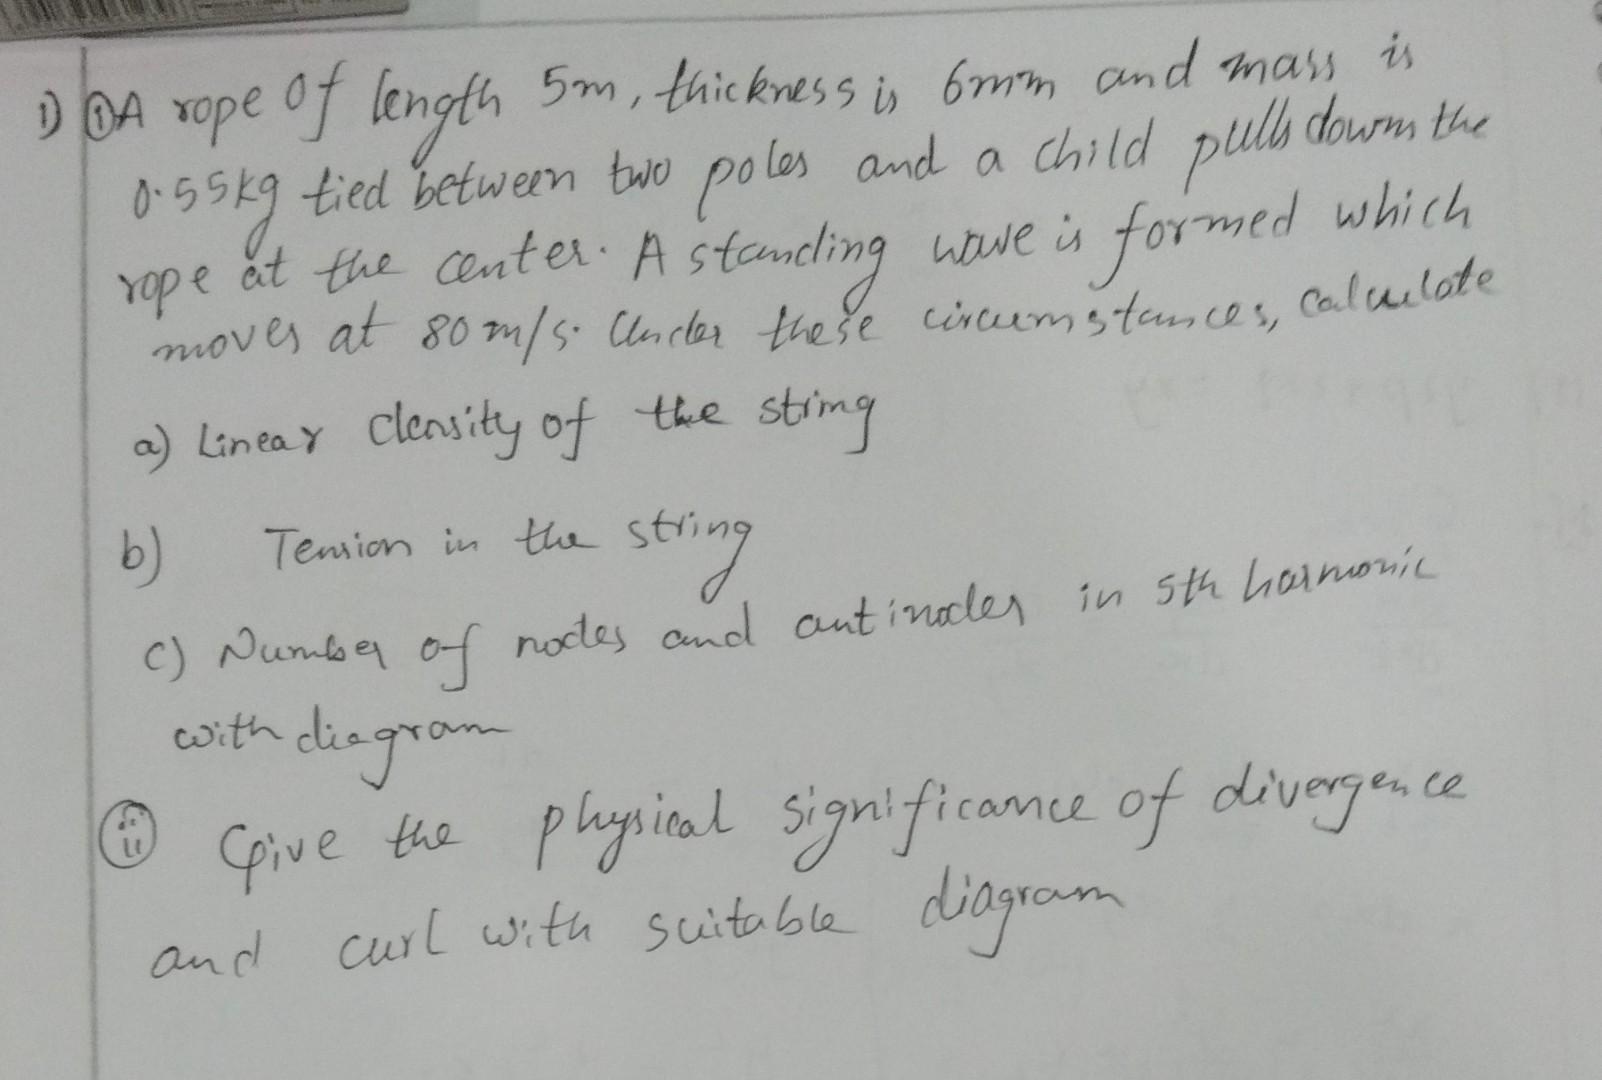 1) ① A rope of length 5m, thickness is 6mm and mass is
0.55kg tied between two poles and a child pulls down the
rope at the center. A standing wave is formed which
moves at 80 m/s. Under these circumstances, calculate
a) Linear density of the string
b) Tension in the string
c) Number of nodes and antinodes in 5th harmonic
with diagram
ii Give the physical significance of divergence
and curl with suitable diagram